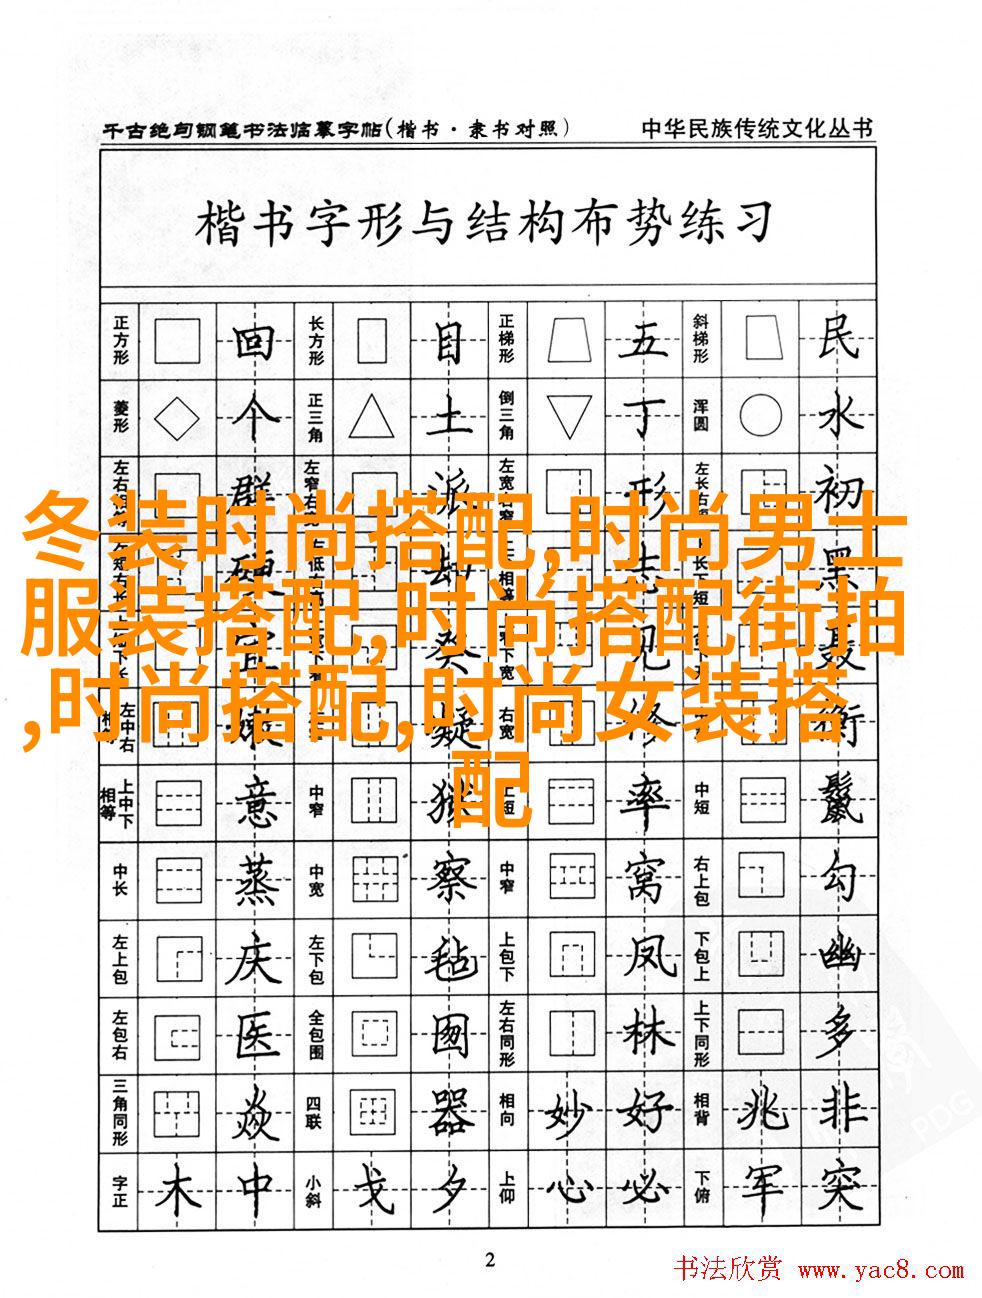 千古绝句钢笔书法临摹字帖(楷书·隶书对照) 中华民族传统文化丛书
楷书字形与结构布势练习
正方形 回 长方形 目 正梯形 五 斜梯形 民
菱形 个 正三角 土 倒三角 丁 浑圆 水
左右相等 群 左窄右宽 派 左宽右窄 形 左长右短 初
冬装时尚搭配,时尚男士
左短右长 硬 劫 上下相等 志 上长下短 黑
服装搭配,时尚搭配街拍
宜 癸 见 聂
,时尚搭配,时尚女装搭
左中右相等 疑 右宽 修 衡
配
上中下相等 意 中窄 狱 上短 率 中短 鬣
中长 蒸 中宽 察 中窄 窝 右上包 勾
左上包 庆 左下包 毡 上包下 凤 下包上 幽
左包右 医 全包围 囫 左右同形 林 上下同形 多
三角同形 焱 四联 器 相向 妙 好 相背 兆 非
字正 木 中 小斜 戈 夕 上仰 心 必 下俯 军 突
2
书法欣赏 www.yac8.com
PDG